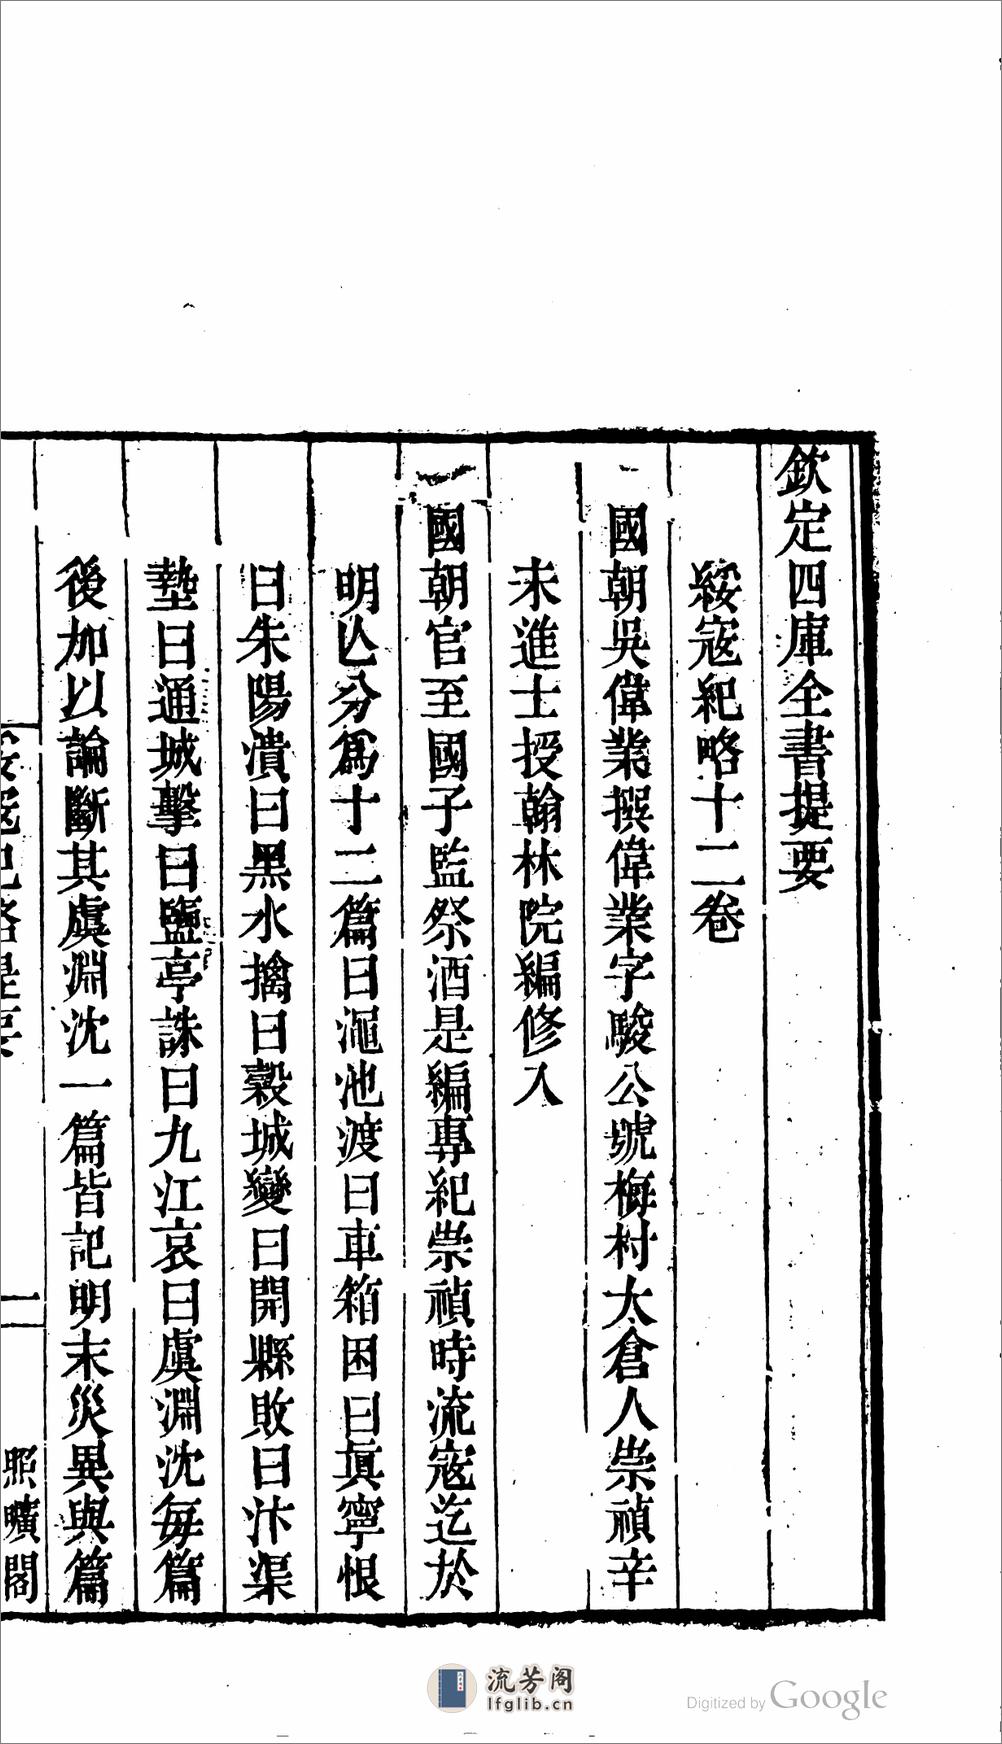 欽定四庫全書提要
綏寇紀略十二卷
國朝吳偉業撰偉業字駿公號梅村太倉人崇禎辛
未進士授翰林院編修入
國朝官至國子監祭酒是編專紀崇禎時流寇迄於
明亾分爲十二篇曰澠池渡曰車箱困曰眞寧恨
曰朱陽潰曰黑水擒曰穀城變曰開縣敗曰汴渠
墊曰通城擊曰鹽亭誅曰九江哀曰虞淵沈每篇
後加以論斷其虞淵沈一篇皆記明末災異與篇
綏寇紀略提要
一
照曠閣
流芳阁
lfglib.cn
Digitized by Google